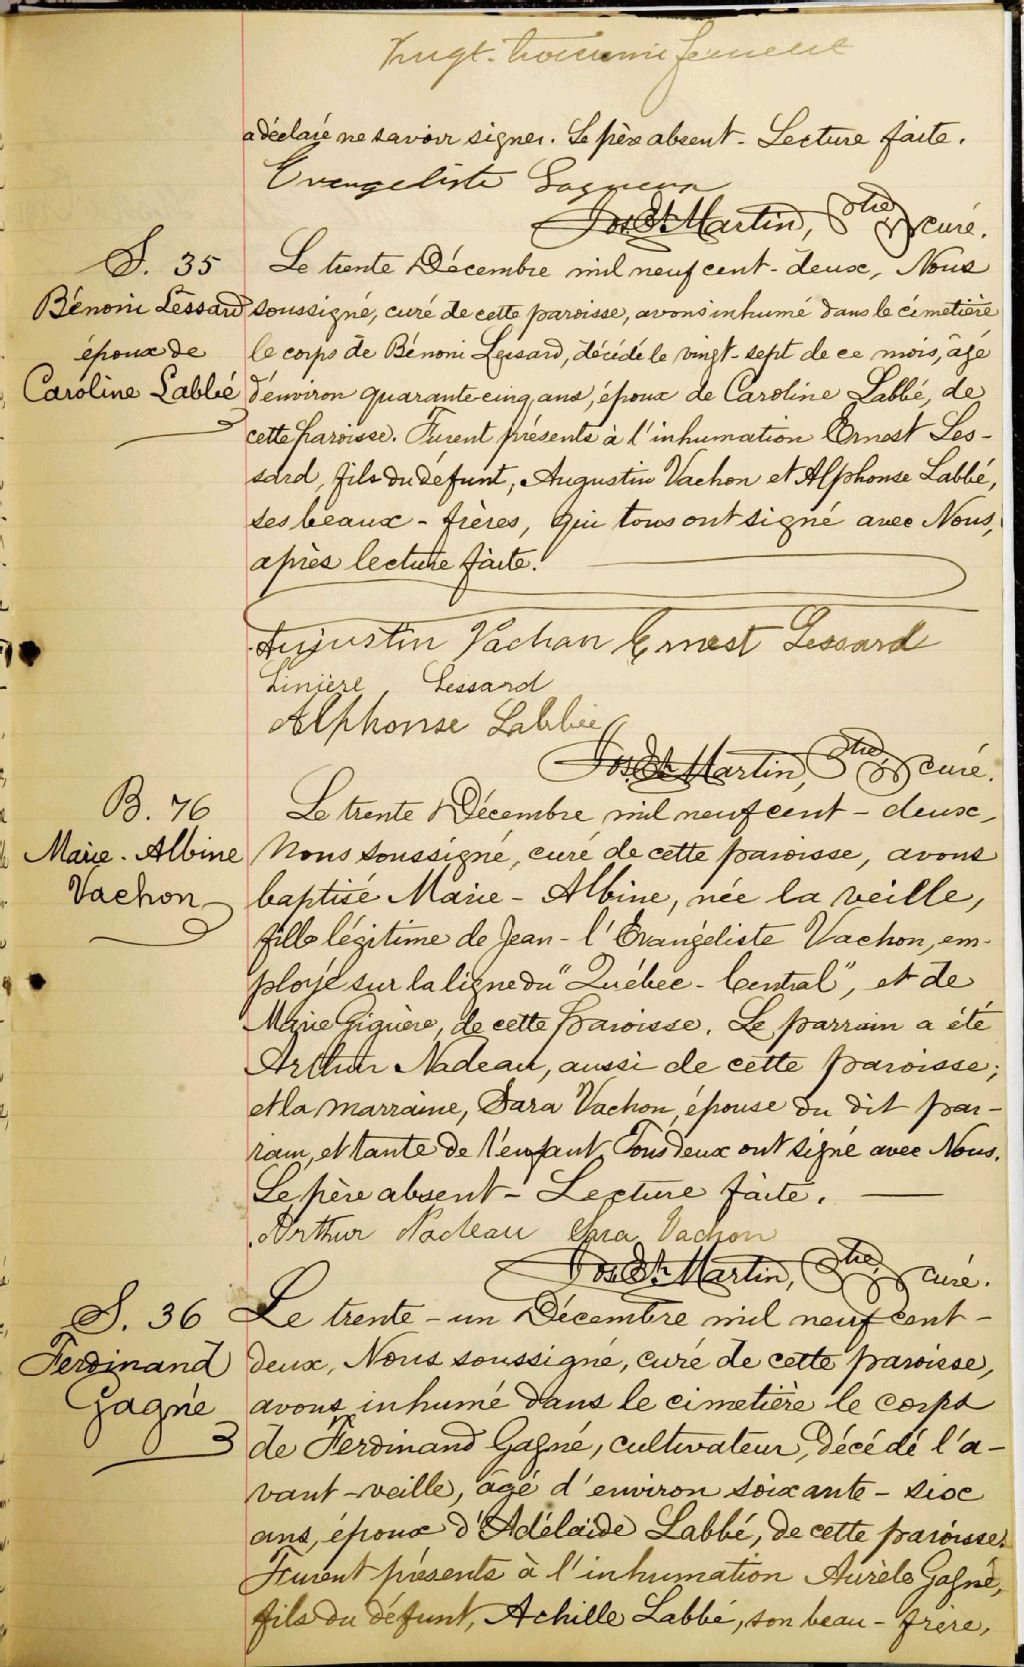 Vingt-troisième feuillet
a déclaré ne savoir signer. Le père absent - Lecture faite.
Evangeliste Gagneux
Jos. Et. Martin, Ptre curé.
S. 35
Bénoni Lessard
époux de
Caroline Labbé
Le trente Décembre mil neuf cent-deux, Nous
soussigné, curé de cette paroisse, avons inhumé dans le cimetière
le corps de Bénoni Lessard, décédé le vingt-sept de ce mois, âgé
d'environ quarante-cinq ans, époux de Caroline Labbé, de
cette paroisse. Furent présents à l'inhumation Ernest Les-
sard, fils du défunt, Augustin Vachon et Alphonse Labbé,
ses beaux-frères, qui tous ont signé avec Nous,
après lecture faite.
Augustin Vachon Ernest Lessard
Linière Lessard
Alphonse Labbée
Jos. Et. Martin, Ptre curé.
B. 76
Marie-Albine
Vachon
Le trente Décembre mil neuf cent-deux,
Nous soussigné, curé de cette paroisse, avons
baptisé Marie-Albine, née la veille,
fille légitime de Jean-l'Evangéliste Vachon, em-
ployé sur la ligne du "Québec-Central", et de
Marie Giguère, de cette paroisse. Le parrain a été
Arthur Nadeau, aussi de cette paroisse;
et la marraine, Sara Vachon, épouse du dit par-
rain, et tante de l'enfant. Tous deux ont signé avec Nous.
Le père absent - Lecture faite.
Arthur Nadeau Sara Vachon
Jos. Et. Martin, Ptre curé.
S. 36
Ferdinand
Gagné
Le trente-un Décembre mil neuf cent-
deux, Nous soussigné, curé de cette paroisse,
avons inhumé dans le cimetière le corps
de Ferdinand Gagné, cultivateur, décédé l'a-
vant-veille, âgé d'environ soixante-six
ans, époux d'Adélaïde Labbé, de cette paroisse.
Furent présents à l'inhumation Aurèle Gagné,
fils du défunt, Achille Labbé, son beau-frère,